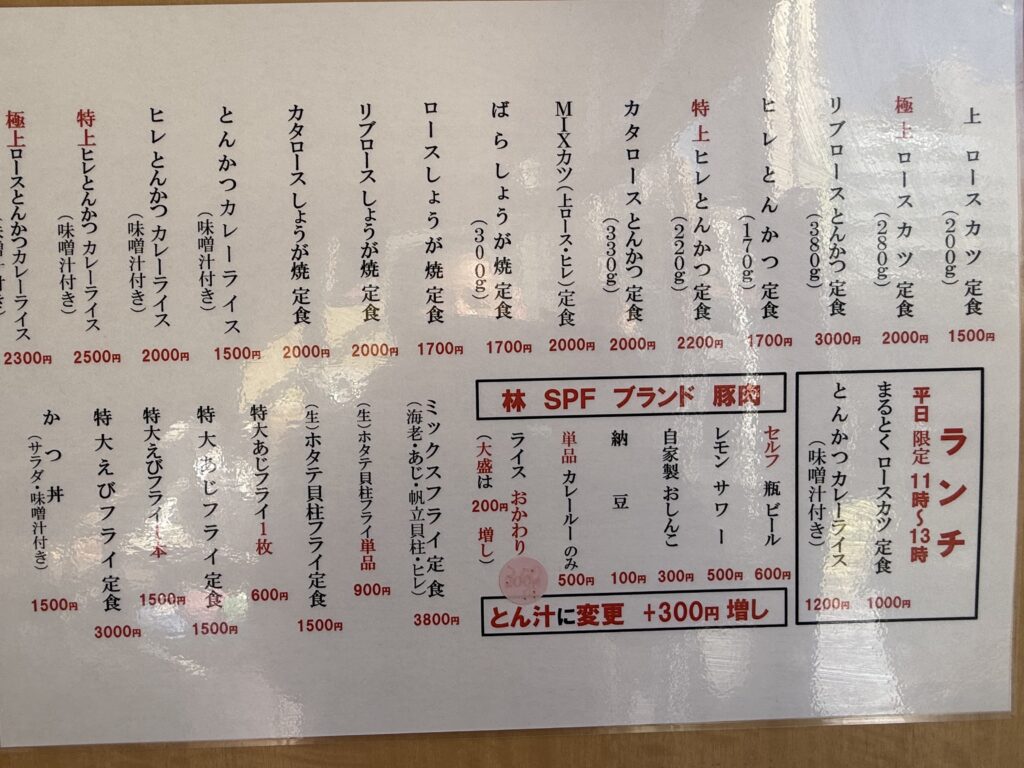 上 ロースカツ 定食
(200g)
1500円
極上 ロースカツ 定食
(280g)
2000円
リブロースとんかつ 定食
(380g)
3000円
ヒレ とんかつ 定食
(170g)
1700円
特上 ヒレとんかつ 定食
(220g)
2200円
カタロースとんかつ 定食
(330g)
2000円
MIXカツ(上ロース・ヒレ)定食
2000円
ばら しょうが焼 定食
(300g)
1700円
ロースしょうが 焼 定食
1700円
リブロースしょうが焼 定食
2000円
カタロースしょうが焼 定食
2000円
とんかつカレーライス
(味噌汁付き)
1500円
ヒレ とんかつ カレーライス
(味噌汁付き)
2000円
特上ヒレとんかつ カレーライス
(味噌汁付き)
2500円
極上ロースとんかつカレーライス
2300円
ランチ
平日 限定 11時〜13時
まるとくロースカツ 定食
1000円
とんかつカレーライス
(味噌汁付き)
1200円
林 SPF ブランド 豚肉
セルフ 瓶 ビール
600円
レモン サワー
500円
自家製 おしんこ
300円
納 豆
100円
単品 カレールーのみ
500円
ライス おかわり
(大盛は 200円 増し)
とん汁に変更 +300円 増し
ミックスフライ定食
(海老・あじ・帆立貝柱・ヒレ)
3800円
(生)ホタテ貝柱フライ単品
900円
(生)ホタテ貝柱フライ定食
1500円
特大あじフライ1枚
600円
特大あじフライ定食
1500円
特大えびフライ1本
1500円
特大えびフライ定食
3000円
かつ丼
(サラダ・味噌汁付き)
1500円